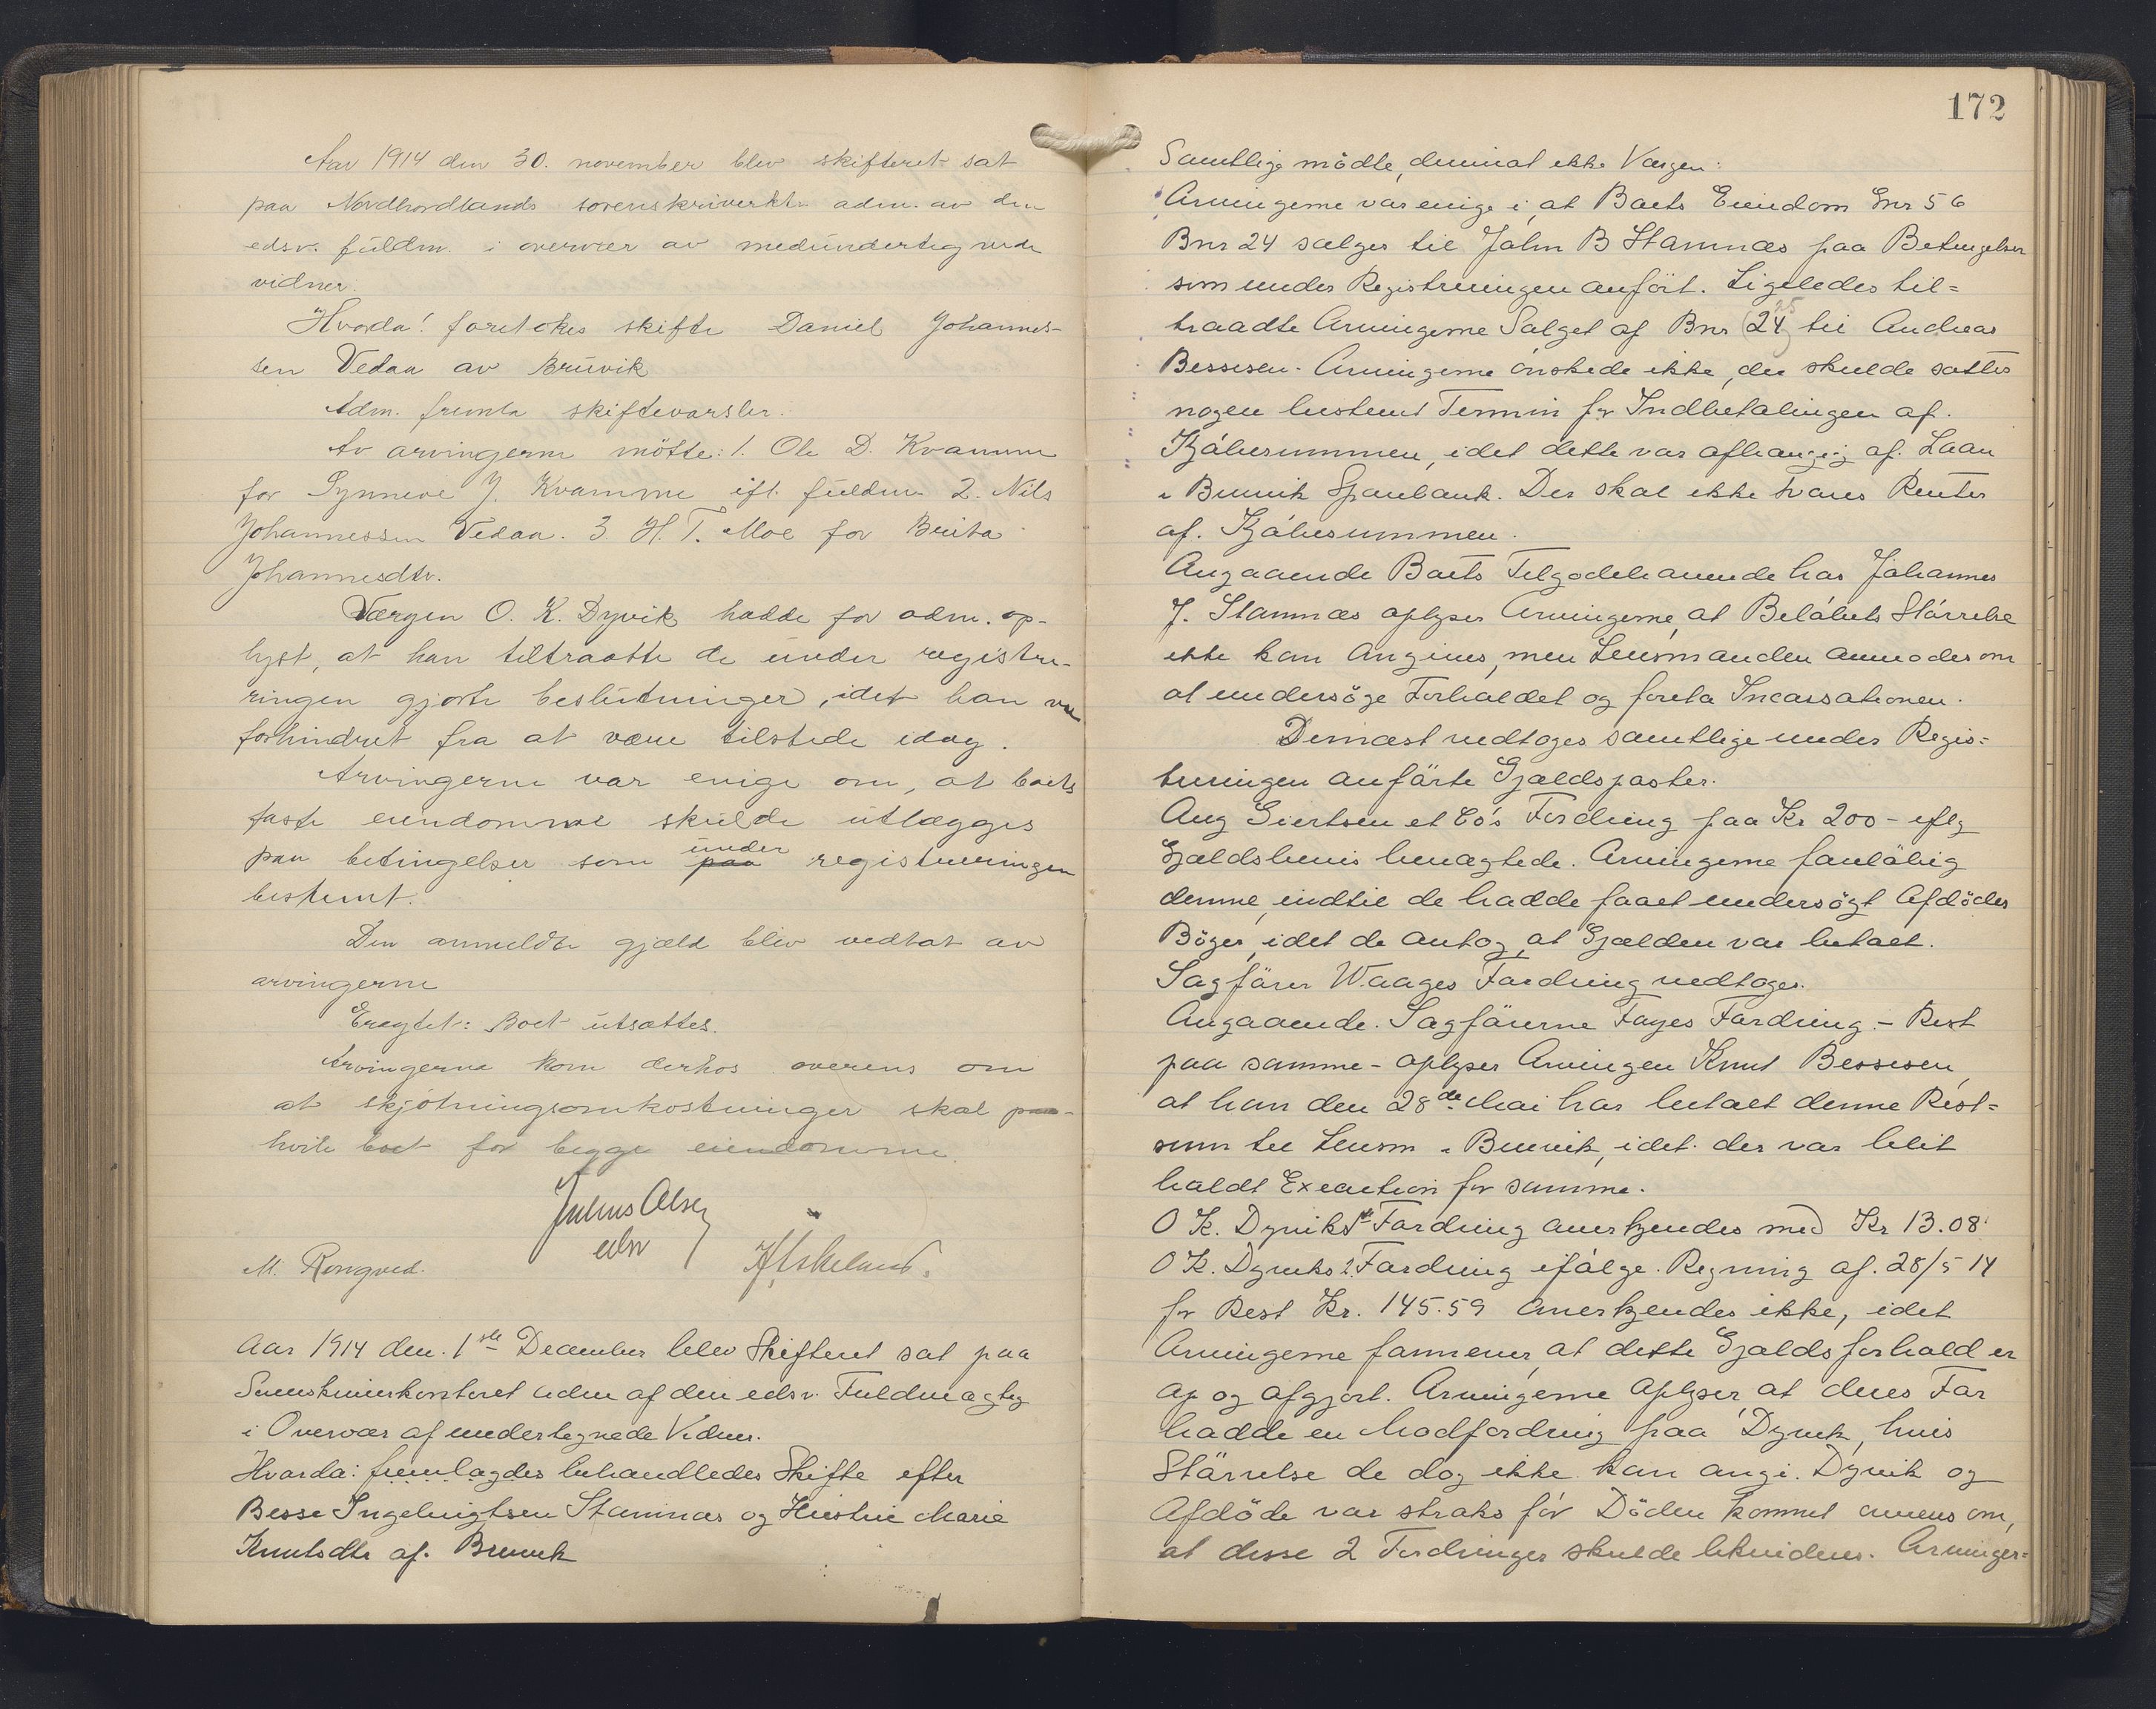 Aar 1914 den 30. november blev skifteret sat
paa Nordhordlands sorenskriverktr. adm. av den
edsv. fuldm. i overvær av medundertegnede
vidner.
Hvorda! foretokes skifte Daniel Johannes-
sen Vedaa av Bruvik
Adm. fremla skiftevarsler.
Av arvingerne mötte: 1. Ole D. Kvamme
for Synneve J. Kvamme ifl. fuldm. 2. Nils
Johannessen Vedaa. 3. H. T. Moe for Brita
Johannesdtr.
Værgen O. K. Dyvik hadde for adm. op-
lyst, at han tiltraatte de under registre-
ringen gjorte beslutninger, idet han var
forhindret fra at være tilstede idag.
Arvingerne var enige om, at boets
faste eiendomme skulde utlægges
paa betingelser som under paa registreringen
bestemt.
Den anmeldte gjæld blev vedtat av
arvingerne
Eragtet: Boet utsættes.
Arvingerne kom derhos overens om
at skjötningsomkostninger skal paa-
hvile boet for begge eiendomme.
Julius Olsen
edsv
M. Rongved.
Aar 1914 den 1ste December blev Skifteret sat paa
Sorenskriverkontoret adm af den edsv. Fuldmægtig
i Overvær af undertegnede Vidner.
Hvorda: fremlagdes behandledes Skifte efter
Besse Ingebrigtsen Stamnæs og Hustru Marie
Knutsdtr af Bruvik
172
Samtlige mödte, derimot ikke Værgen:
Arvingerne var enige i, at Boets Eiendom Gnr 56
Bnr 24 sælges til John B Stamnæs paa Betingelser
som under Registreringen anfört. Ligeledes til=
traadte Arvingerne Salget af Bnr (24) 25 til Andreas
Bessesen. Arvingerne önskede ikke, der skulde sættes
nogen bestemt Termin for Indbetalingen af
Kjöbesummen, idet dette var afhængig af Laan
i Bruvik Sparebank. Der skal ikke svares Renter
af Kjöbesummen.
Angaaende Boets Tilgodehavende hos Johannes
J. Stamnæs oplyser Arvingerne, at Belöbets Störrelse
ikke kan Angives, men Lensmanden anmodes om
at undersöge Forholdet og foreta Incassationen.
Dernæst vedtoges samtlige under Regis=
treringen anförte Gjældsposter.
Aug Giertsen et Co's Fordring paa Kr 200 - iflg
Gjældsbevis benægtede Arvingerne foreløbig
denne, indtil de hadde faaet undersögt Afdödes
Böger, idet de antog, at Gjælden var betalt.
Sagförer Waages Fordring vedtoges.
Angaaende Sagförerne Fayes Fordring - Rest
paa samme - oplyser Arvingen Knut Bessesen,
at han den 28de Mai har betalt denne Rest=
sum til Lensm i Bruvik, idet der var blit
holdt Execution for samme.
O K. Dyviks 1ste Fordring anerkjendes med Kr 13.08
O K. Dyviks 2. Fordring ifölge Regning af 28/5 14
for Rest Kr. 145.59 Anerkjendes ikke, idet
Arvingerne formener, at dette Gjældsforhold er
op og afgjort. Arvingerne Oplyser, at deres Far
hadde en Modfordring paa Dyvik, hvis
Störrelse de dog ikke kan angi. Dyvik og
Afdöde var straks för Döden kommet overens om,
at disse 2 Fordringer skulde likvideres. Arvinger=